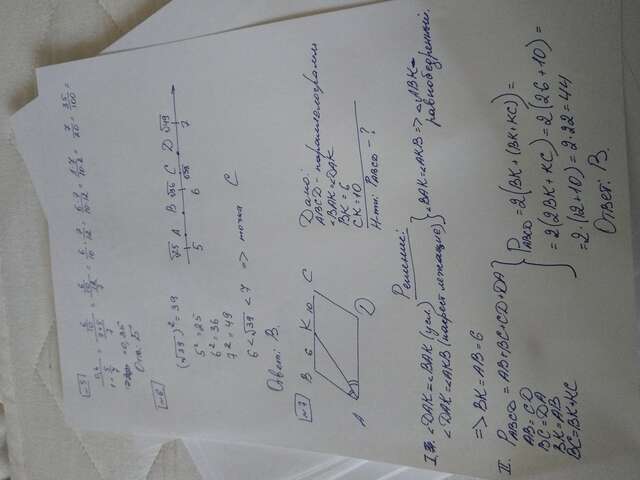 №5
0,6 / 1 5/7 = 6/10 / 7+5/7 = 6/10 / 12/7 = 6/10 · 7/12 = 6·7/10·12 = 1·7/10·2 = 7/20 = 35/100 =
= 0,35
Отв: Б
№6
(√39)² = 39
5² = 25
6² = 36
7² = 49
6 < √39 < 7 => точка C
√25 A B √36 C D √49
5 6 √39 7
Ответ: В.
№7
B 6 K 10 C
A D
Дано:
ABCD - параллелограмм
∠BAK = ∠DAK
BK = 6
CK = 10
Н-ти: P ABCD - ?
Решение:
I. ∠DAK = ∠BAK (усл.)
∠DAK = ∠AKB (накрест лежащие) } ∠BAK = ∠AKB => ∠ABK - равнобедренный.
=> BK = AB = 6
II. P ABCD = AB + BC + CD + DA
AB = CD
BC = DA
BK = AB
BC = BK + KC
P ABCD = 2(BK + (BK + KC)) =
= 2(2BK + KC) = 2(2·6 + 10) =
= 2·(12 + 10) = 2·22 = 44
Ответ: В.